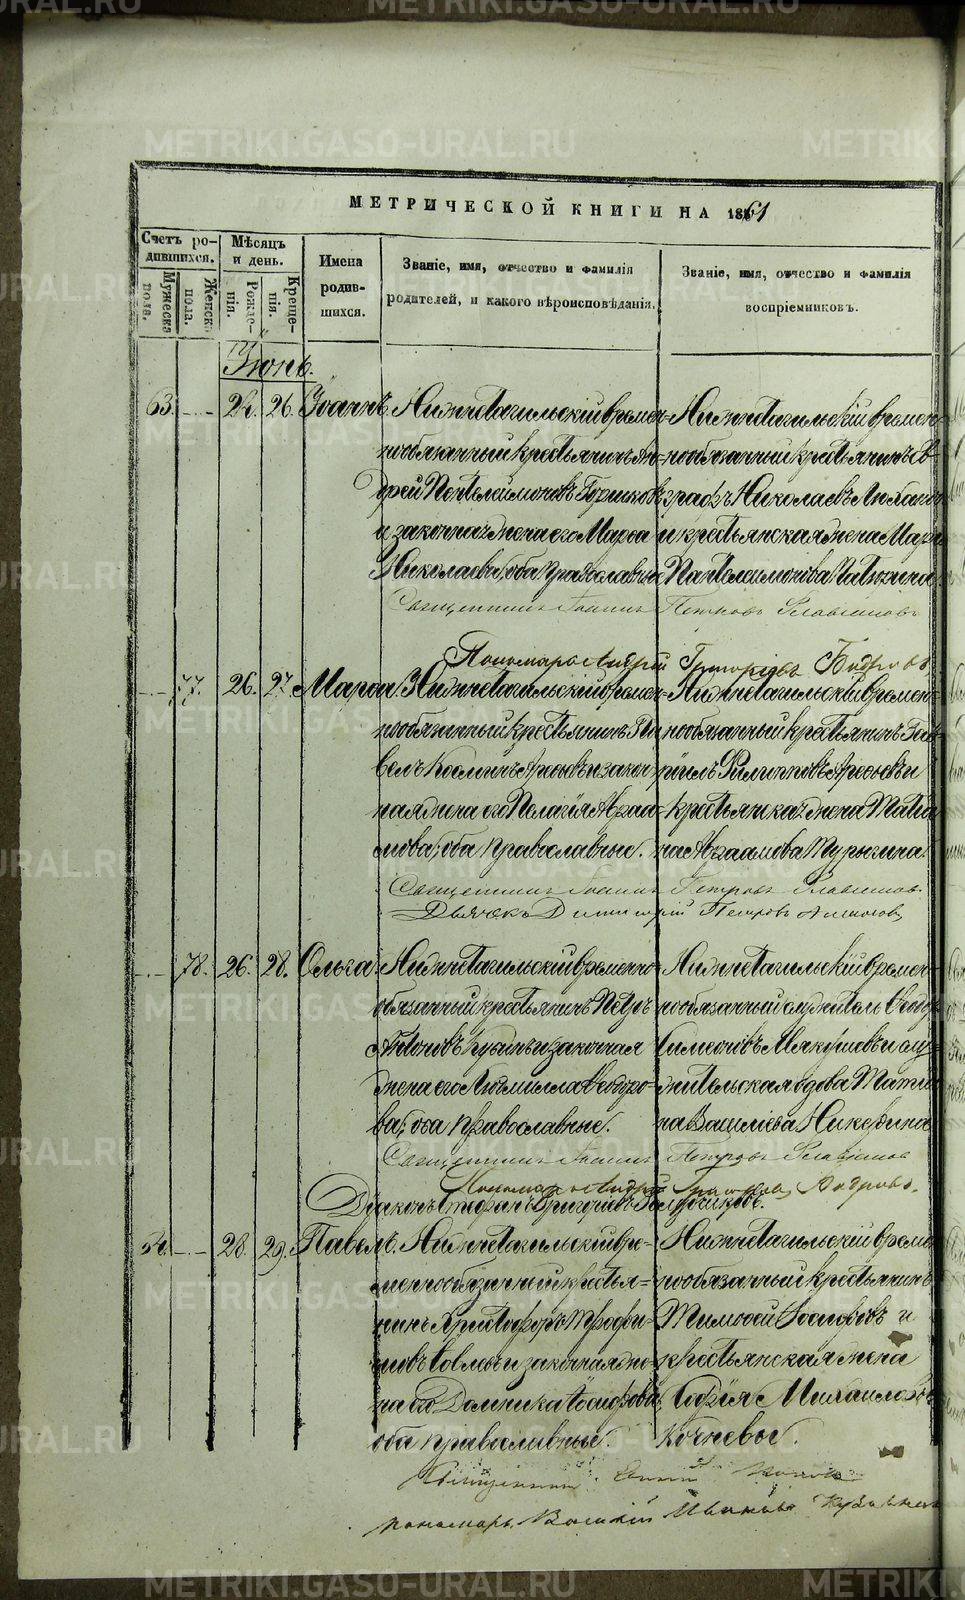 МЕТРИЧЕСКОЙ КНИГИ НА 1861
Счетъ родившихся.
Мужеска пола.
Женска пола.
Мѣсяцъ и день.
Рожденія.
Крещенія.
Имена родившихся.
Званіе, имя, отчество и фамилія
родителей, и какого вѣроисповѣданія.
Званіе, имя, отчество и фамилія
воспріемниковъ.
Іюнь.
63. 26. Іоаннъ.
Нижнетагильскій времен-
нообязанный крестьянинъ Ан-
дрей Пантелеймоновъ Горшковъ
и законная жена его Марѳа
Николаева, оба православные
Нижнетагильскій времен-
нообязанный крестьянинъ Ев-
графъ Николаевъ
и крестьянская жена Марі
Пантелеимонова
Священникъ Іоаннъ Петровъ Славнинъ
Пономарь Андрей Григоріевъ
77. 26. 27. Марѳа
Нижнетагильскій времен-
нообязанный крестьянинъ Па-
велъ Косминъ Арефьевъ и закон-
ная жена его Пелагія Абраа-
мова, оба православные.
Нижнетагильскій времен-
нообязанный крестьянинъ Гав-
ріилъ Филипповъ Арефьевъ и
крестьянская жена Татіа-
на Абраамова Турыгина.
Священникъ Іоаннъ Петровъ
Дьячекъ Димитрій Петровъ
78. 26. 28. Ольга.
Нижнетагильскій временно-
обязанный крестьянинъ Петръ
Антоновъ и законная
жена его Людмилла Ѳеодоро-
ва, оба православные.
Нижнетагильскій времен-
нообязанный служитель Ѳеодоръ
Симеоновъ Мякишевъ и слу-
жительская вдова Татіа-
на Василіева
Священникъ Іоаннъ Петровъ
Пономарь Андрей
Діаконъ Стефанъ Григоріевъ
64. 28. 29. Павелъ.
Нижнетагильскій вре-
меннообязанный крестья-
нинъ Христофоръ Трофи-
мовъ и законная же-
на его Домника Іосифова,
оба православные.
Нижнетагильскій времен-
нообязанный крестьянинъ
Тимоѳей Іосифовъ и
крестьянская жена
Софія Михаилова
Кочневы.
Священникъ
пономарь Василій Ивановъ
METRIKI.GASO-URAL.RU